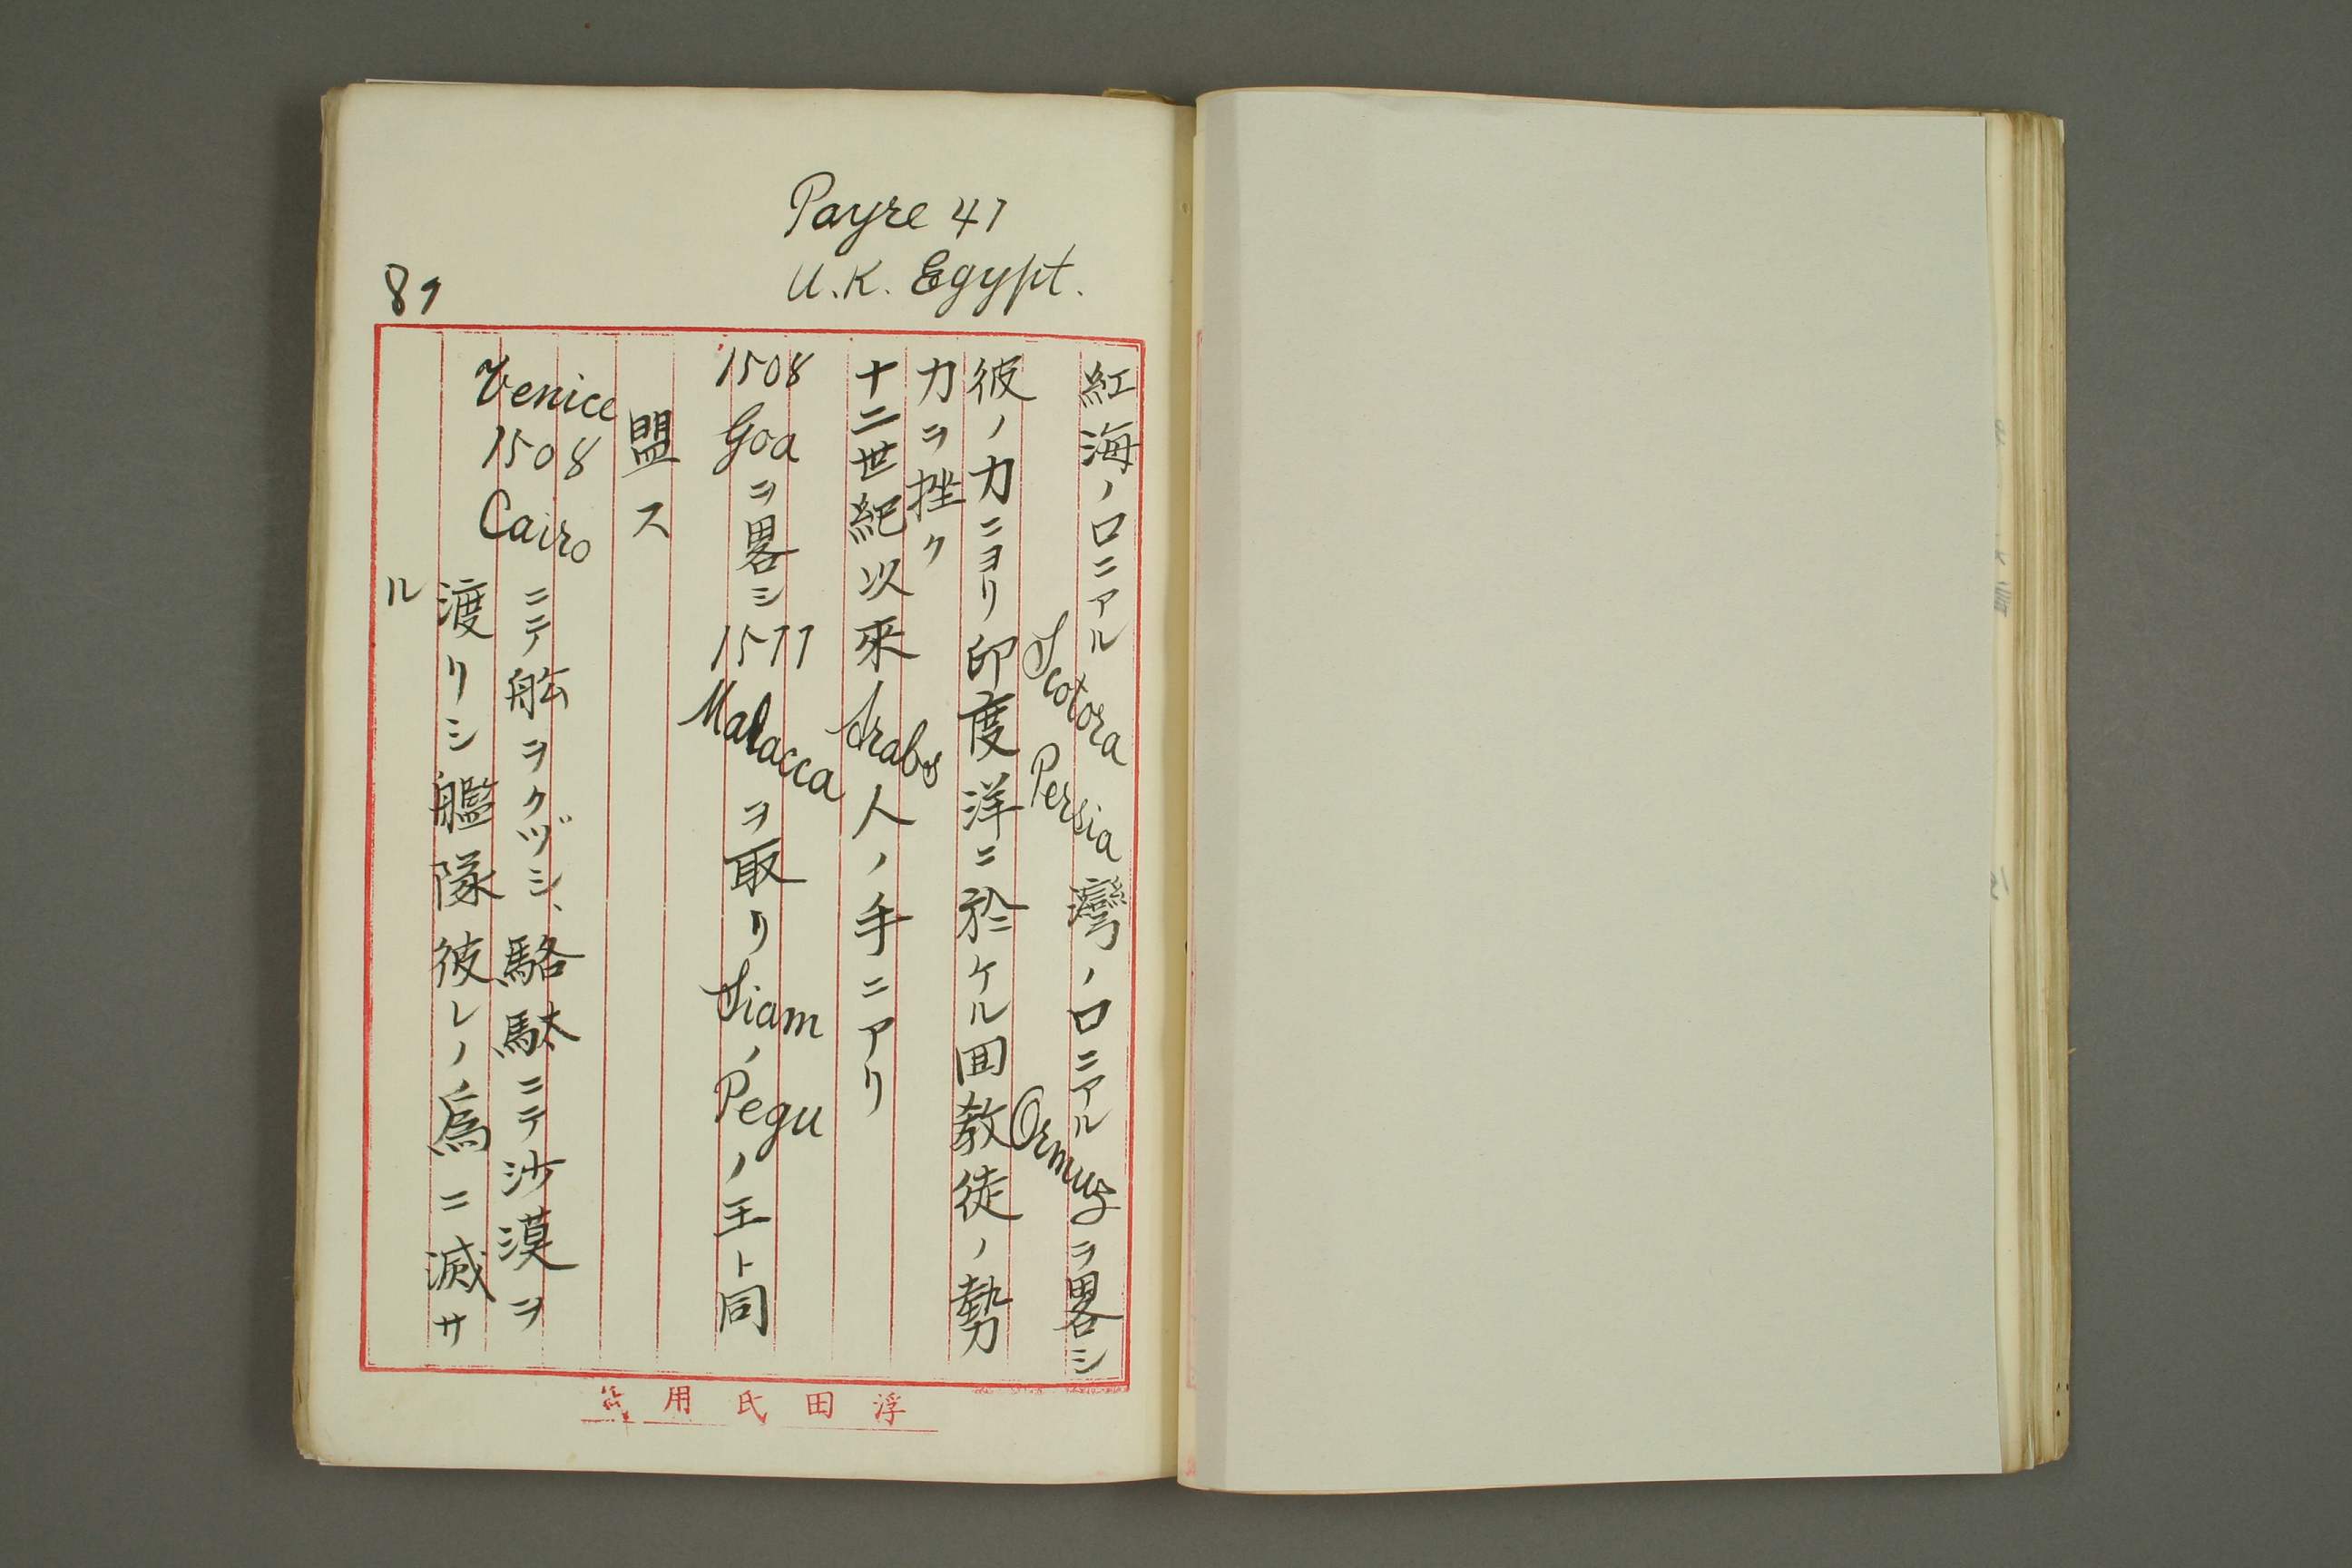 Payre 41
U.K. Egypt.
89
紅海ノ口ニアル Scotora Persia 灣ノ口ニアル Ormuz ヲ畧シ
彼ノ力ニヨリ印度洋ニ於ケル囬教徒ノ勢
力ヲ挫ク
十二世紀以來 Arabs 人ノ手ニアリ
1508 Goa ヲ畧シ 1511 Malacca ヲ取リ Siam ノ Pegu ノ王ト同
盟ス
Venice 1508 Cairo ニテ舩ヲクヅシ、駱駄ニテ沙漠ヲ
渡リシ艦隊彼レノ爲ニ滅サ
ル
浮田氏用箋